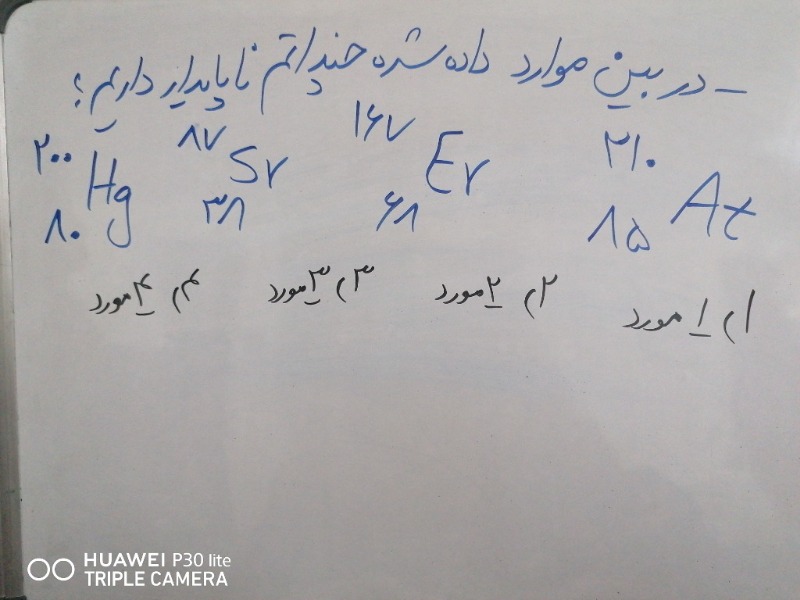 - در بین موارد داده شده چند اتم ناپایدار داریم؟
۲۱۰ ۸۵ At ۱۶۷ ۶۸ Er ۸۷ ۳۸ Sr ۲۰۰ ۸۰ Hg
۱) ۱ مورد ۲) ۲ مورد ۳) ۳ مورد ۴) ۴ مورد
HUAWEI P30 lite
TRIPLE CAMERA